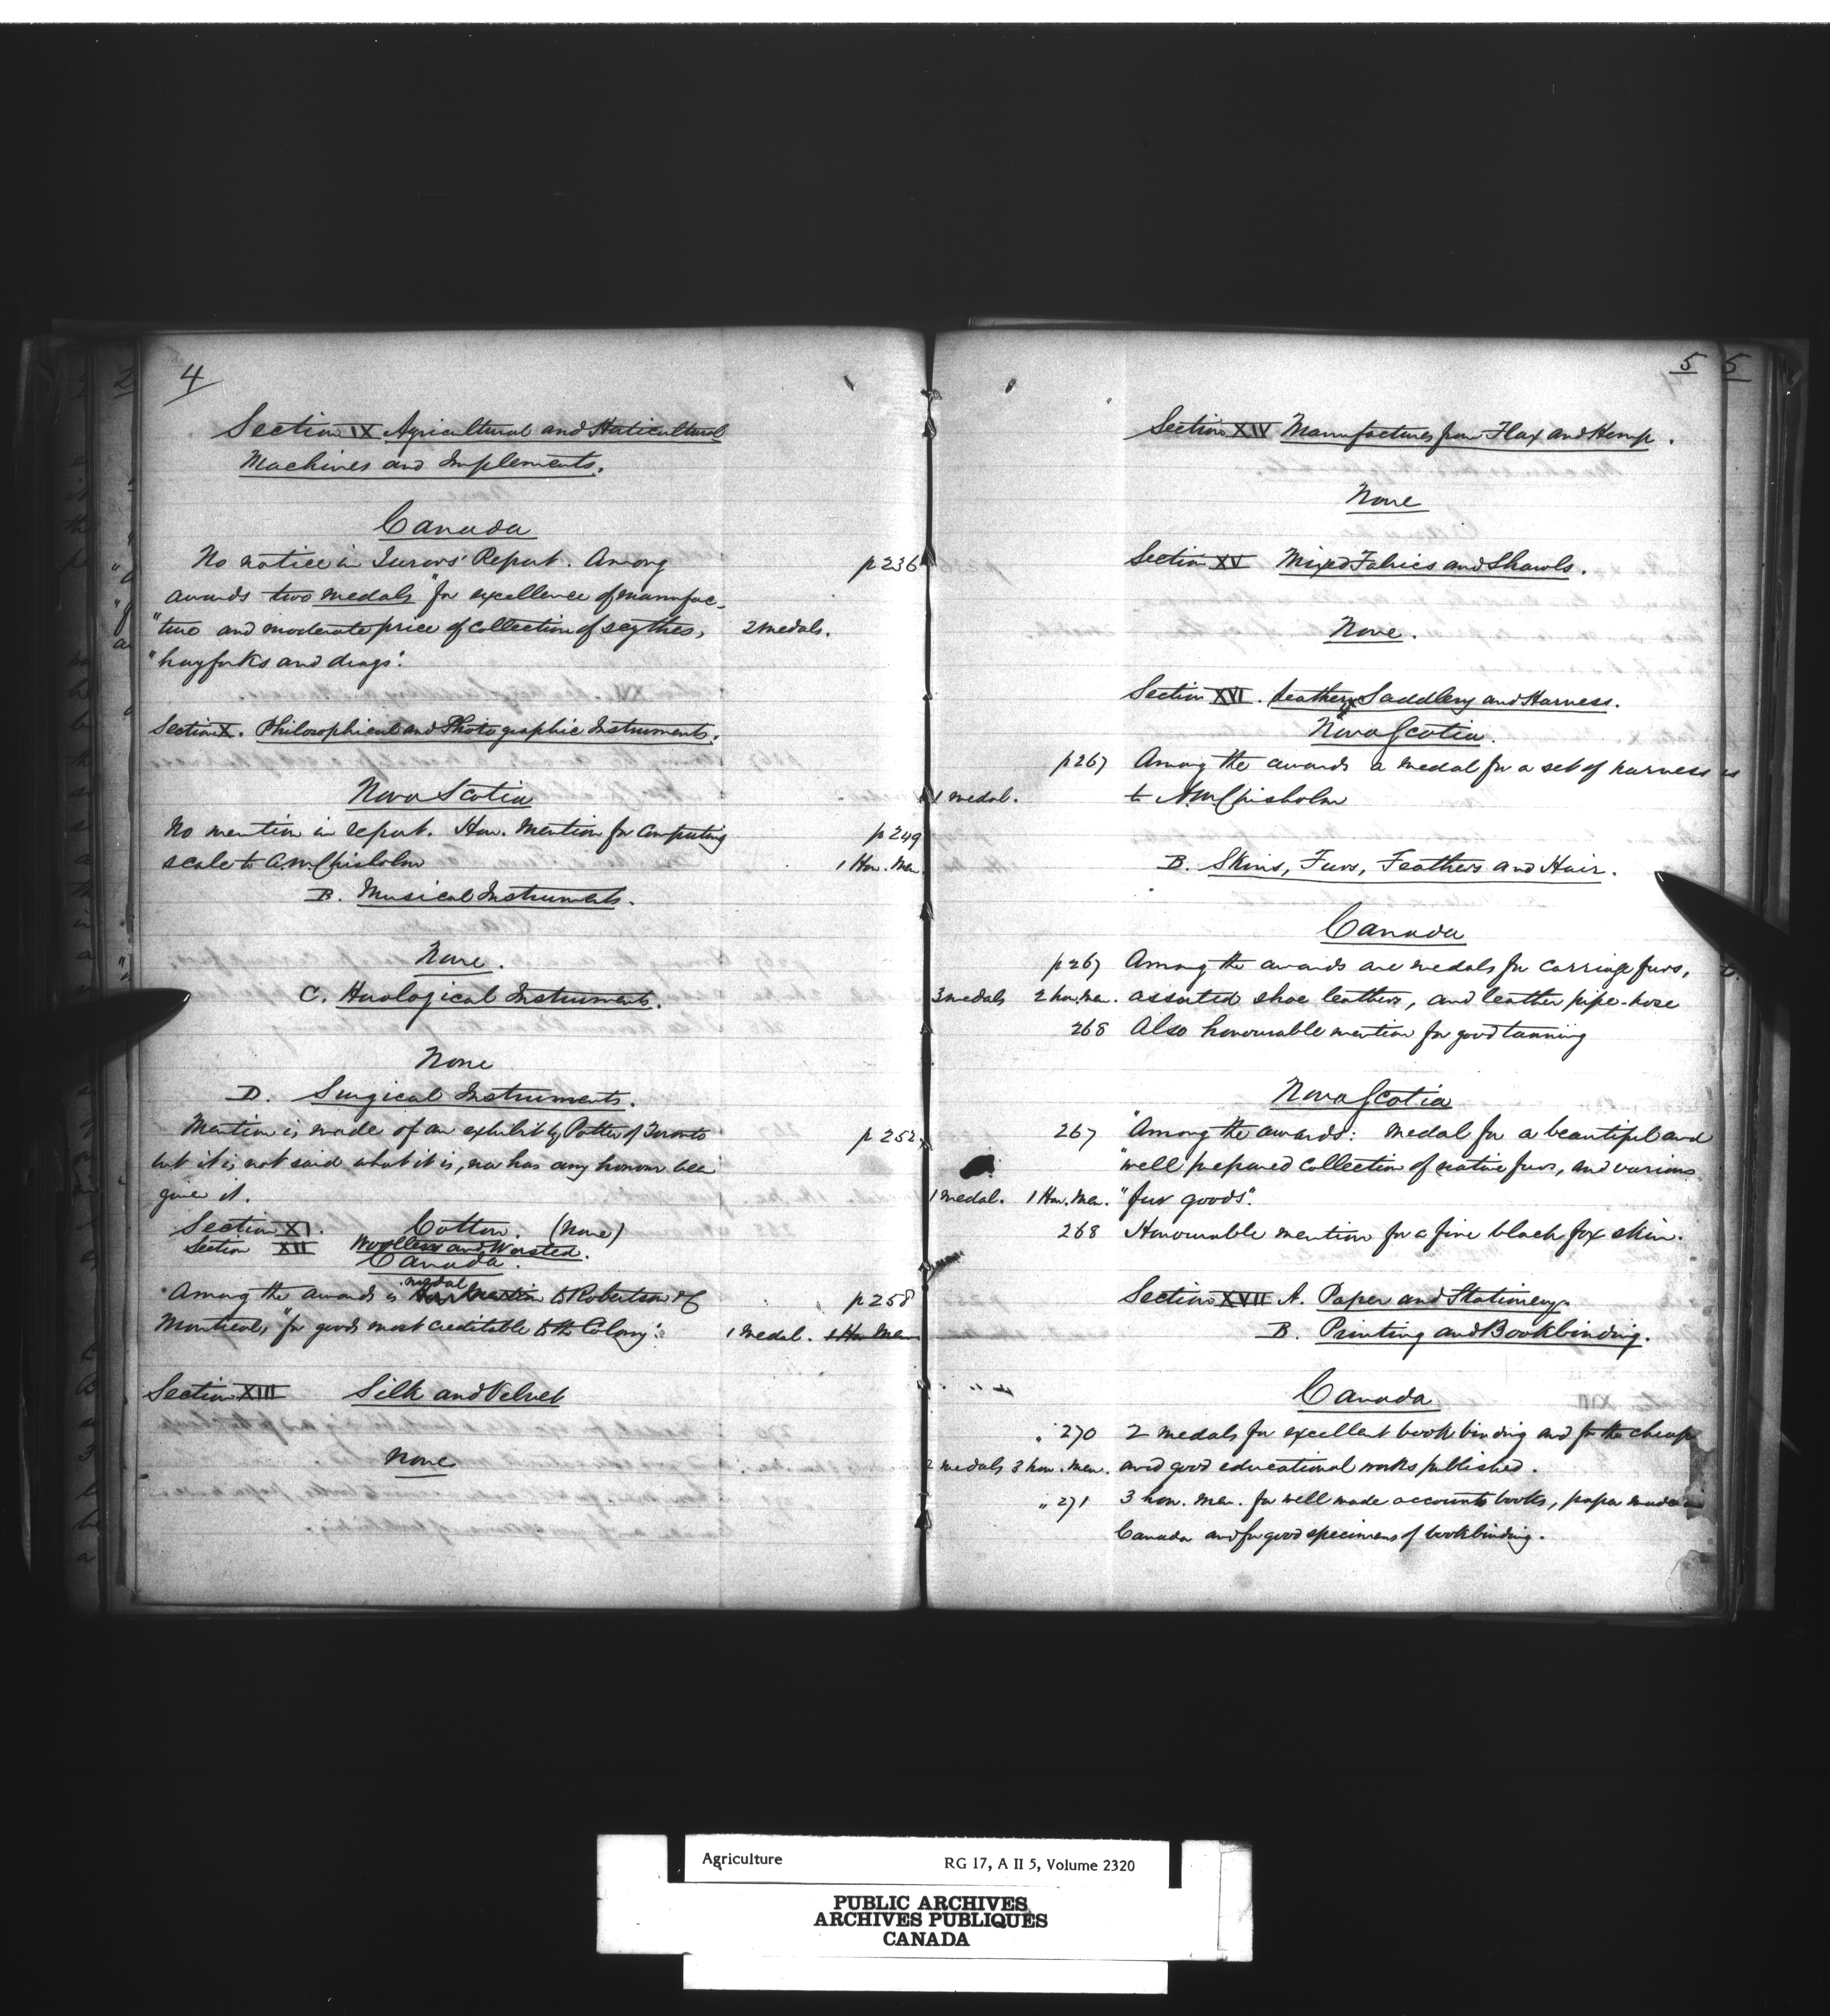 4
Section IX Agricultural and Horticultural
Machines and Implements.
Canada
No notice in Jurors' Report. Among p 236
awards two medals "for excellence of manufac-
"ture and moderate price of collection of scythes, 2 medals.
"hayforks and drags".
Section X. Philosophical and Photographic Instruments.
Nova Scotia
No mention in report. Hon. Mention for Computing p 249
scale to A.M. Chisholm 1 Hon. Men.
B. Musical Instruments.
None.
C. Horological Instruments.
None
D. Surgical Instruments.
Mention is made of an exhibit by Potter of Toronto p 252
but it is not said what it is, nor has any honour been
given it.
Section XI. Cotton. (None)
Section XII Woollens and Worsted.
Canada.
medal
Among the awards is Hon Mention to Robertson & Co p 258
Montreal, "for goods most creditable to the Colony". 1 medal. 1 Hon Men
Section XIII Silk and Velvet
None
5
5
Section XIV Manufactures from Flax and Hemp.
None
Section XV Mixed Fabrics and Shawls.
None.
Section XVI. Leather, Saddlery and Harness.
Nova Scotia.
p 267 Among the awards a medal for a set of harness is
1 medal. to A M Chisholm
B. Skins, Furs, Feathers and Hair.
Canada
p 267 Among the awards are medals for carriage furs,
3 medals 2 hon. men. assorted shoe leathers, and leather pipe-hose
268 Also honourable mention for good tanning
Nova Scotia
267 "Among the awards: medal for a beautiful and
"well prepared collection of native furs, and various
1 medal. 1 Hon. Men. "fur goods".
268 Honourable mention for a fine black fox skin.
Section XVII A. Paper and Stationery.
B. Printing and Bookbinding.
Canada
" 270 2 medals for excellent book binding and for the cheap
2 medals 3 hon. men. and good educational works published.
" 271 3 hon. men. for well made accounts books, paper made in
Canada and for good specimens of bookbinding.
Agriculture RG 17, A II 5, Volume 2320
PUBLIC ARCHIVES
ARCHIVES PUBLIQUES
CANADA